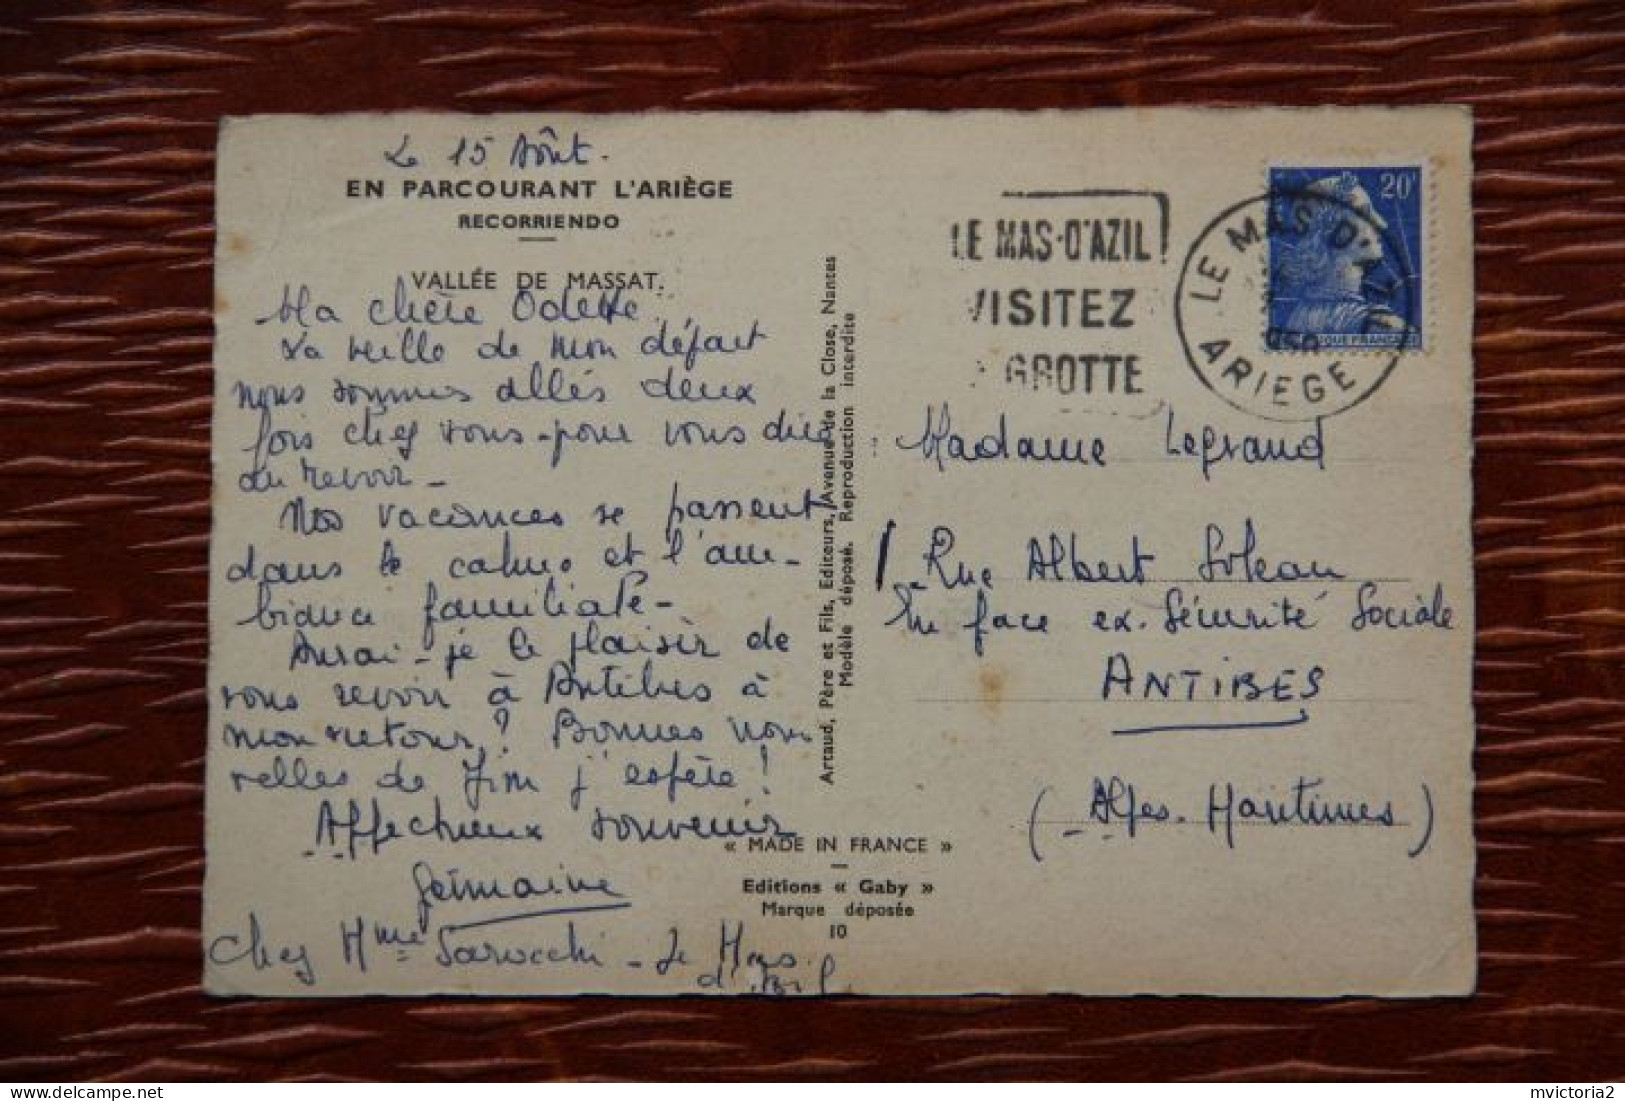 Le 15 Août.
EN PARCOURANT L'ARIÈGE
RECORRIENDO
VALLÉE DE MASSAT.
Ma chère Odette
La veille de mon départ
nous sommes allés deux
fois chez vous - pour vous dire
au revoir -
Nos vacances se passent
dans le calme et l'am-
biance familiale -
Aurai-je le plaisir de
vous revoir à Antibes à
mon retour? Bonnes nou
velles de Jim j'espère!
Affectueux souvenir
Germaine
Chez Mme Sarocchi - Le Mas
d'Azil
Artaud, Père et Fils, Editeurs, Avenue de la Close, Nantes
Modèle déposé. Reproduction interdite
« MADE IN FRANCE »
Editions « Gaby »
Marque déposée
10
LE MAS-D'AZIL
VISITEZ
GROTTE
LE MAS D'AZIL
ARIEGE
20F
Madame Legrand
1 Rue Albert Soleau
En face ex. Sécurité Sociale
ANTIBES
(Alpes-Maritimes)
mvictoria2